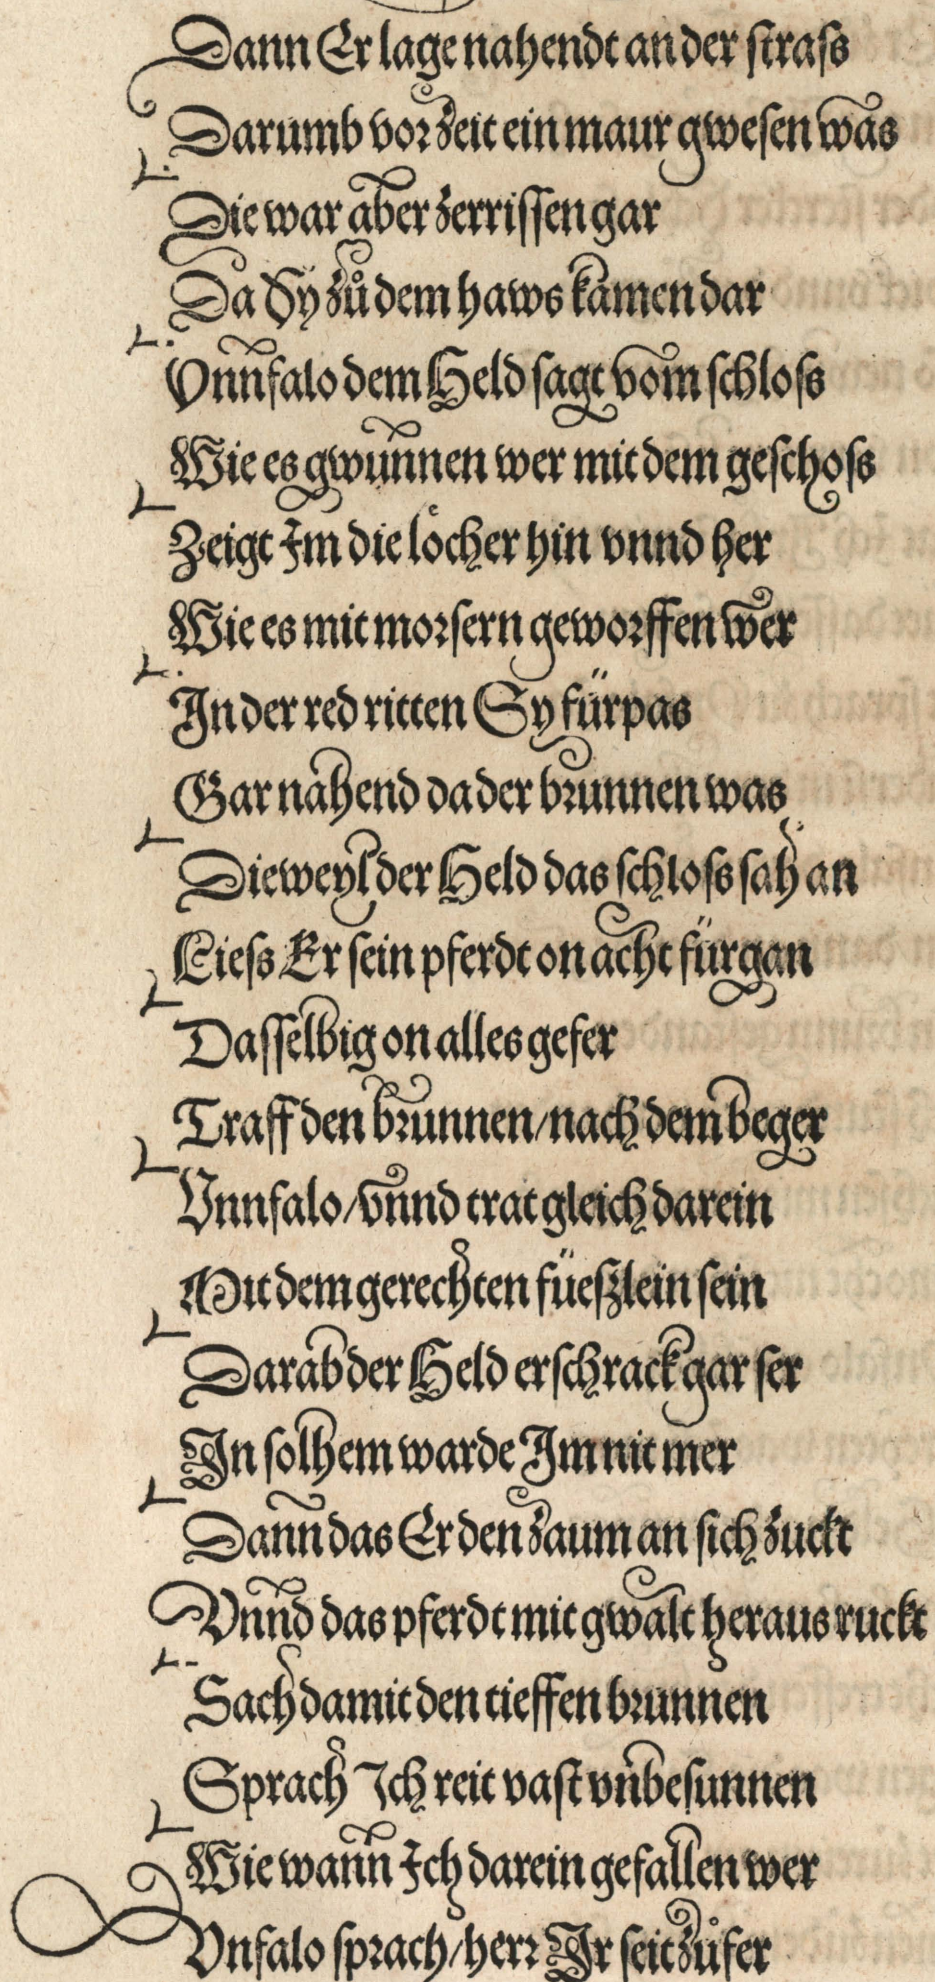 Dann Er lage nahendt an der straſs
Darumb vor zeit ein maur gweſen was
Die war aber zerriſſen gar
Da Sy zů dem haws kamen dar
Vnnfalo dem Held ſagt vom ſchloſs
Wie es gwunnen wer mit dem geſchoſs
Zeigt Im die löcher hin vnnd her
Wie es mit morſern geworffen wer
In der red ritten Sy fürpas
Gar nahend da der brunnen was
Dieweyl der Held das ſchloſs ſah an
Lieſs Er ſein pferdt on acht fürgan
Daſſelbig on alles gefer
Traff den brunnen/nach dem beger
Vnnfalo/vnnd trat gleich darein
Mit dem gerechten füeſzlein ſein
Darab der Held erſchrack gar ſer
In ſolhem warde Im nit mer
Dann das Er den zaum an ſich zuckt
Vnnd das pferdt mit gwalt heraus ruckt
Sach damit den tieffen brunnen
Sprach Ich reit vaſt vnbeſunnen
Wie wann Ich darein gefallen wer
Vnfalo ſprach/herr Ir ſeit zůfer